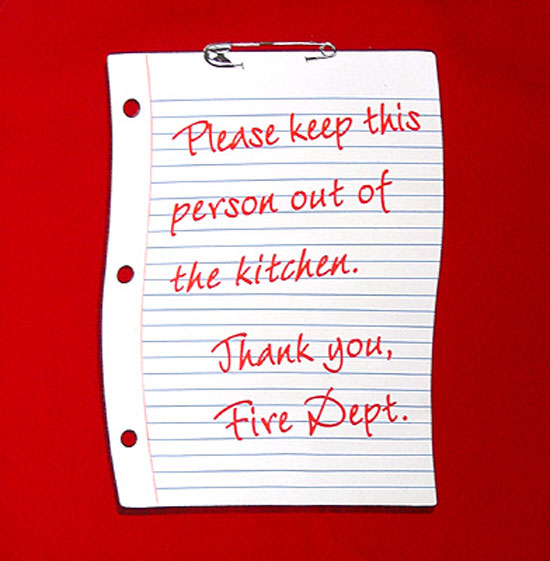 Please keep this
person out of
the kitchen.
Thank you,
Fire Dept.